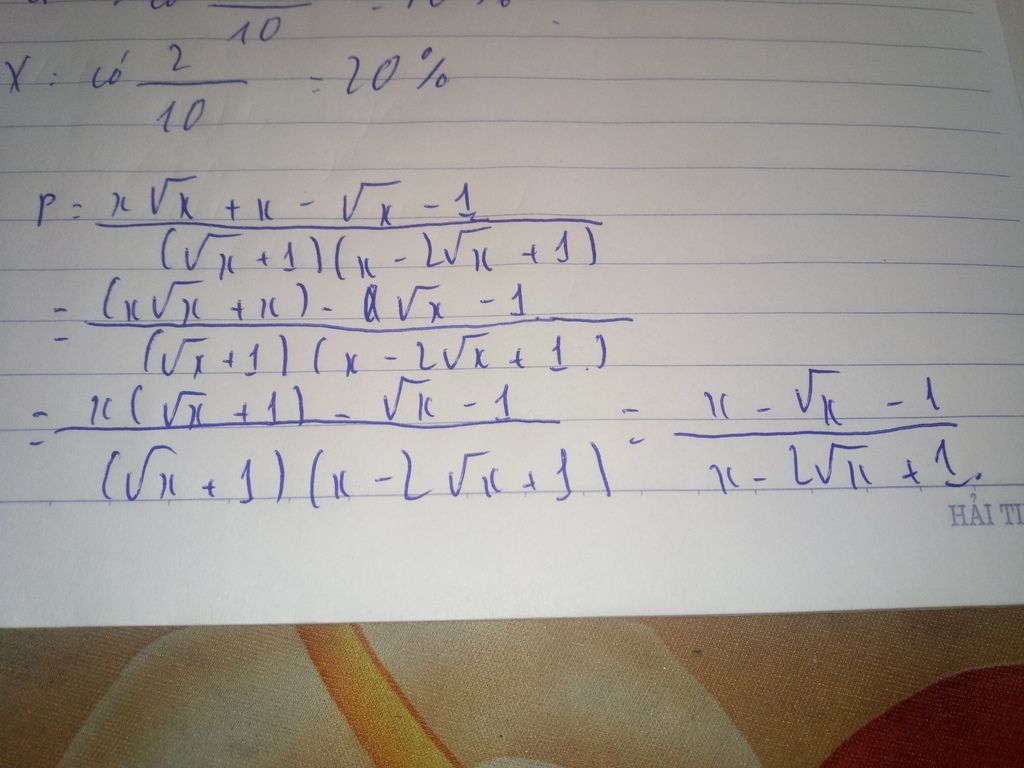 10
X : có 2/10 = 20%
P = x√x + x - √x - 1 / (√x + 1)(x - 2√x + 1)
= (x√x + x) - √x - 1 / (√x + 1)(x - 2√x + 1)
= x(√x + 1) - √x - 1 / (√x + 1)(x - 2√x + 1) = x - √x - 1 / x - 2√x + 1.
HẢI TI